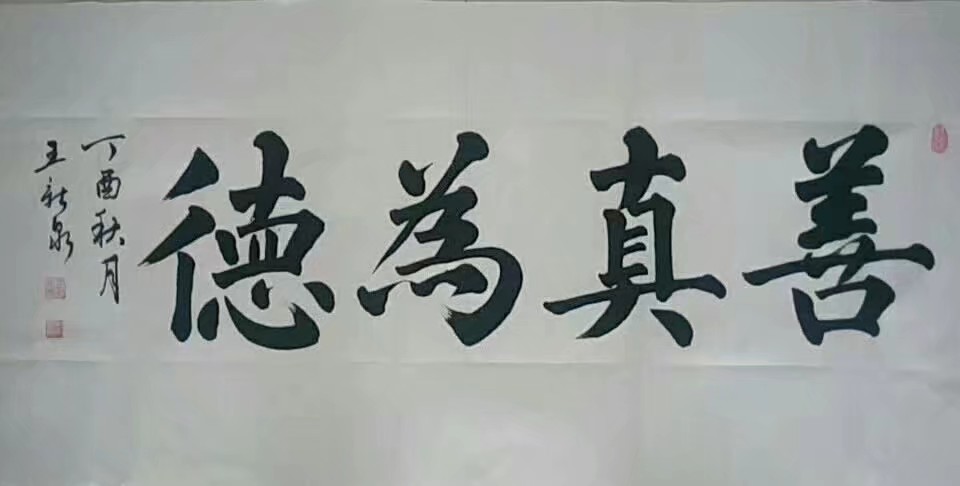 善真為德
丁酉秋月
王新泉